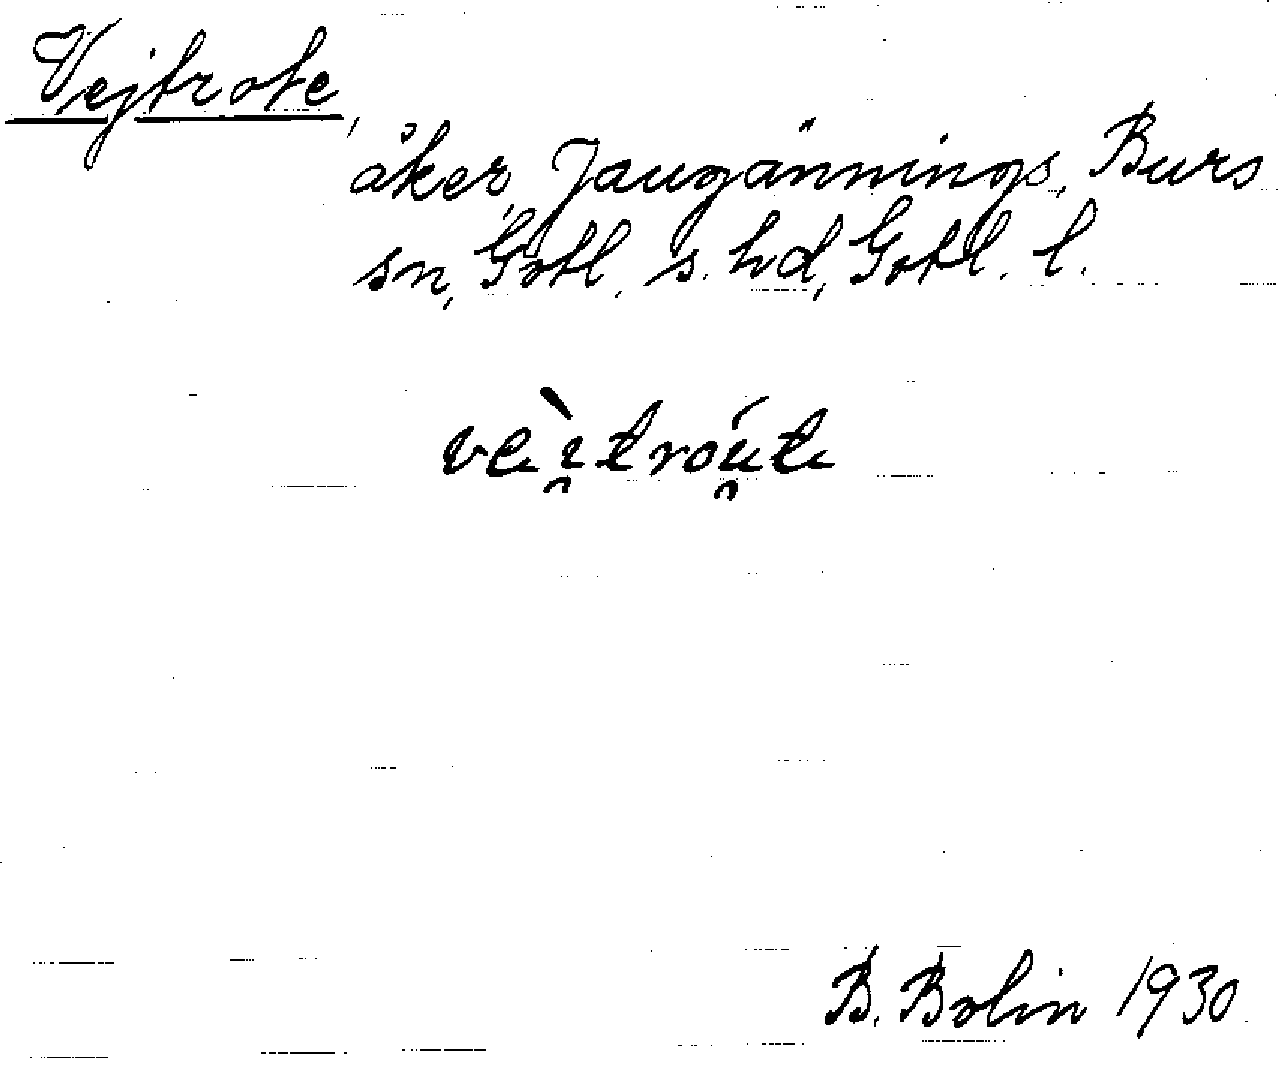 Vejtrote,
åker, Jaugännings, Burs
sn, Gotl. s. hd, Gotl. l.
vèi̯troú̯te
B. Bolin 1930